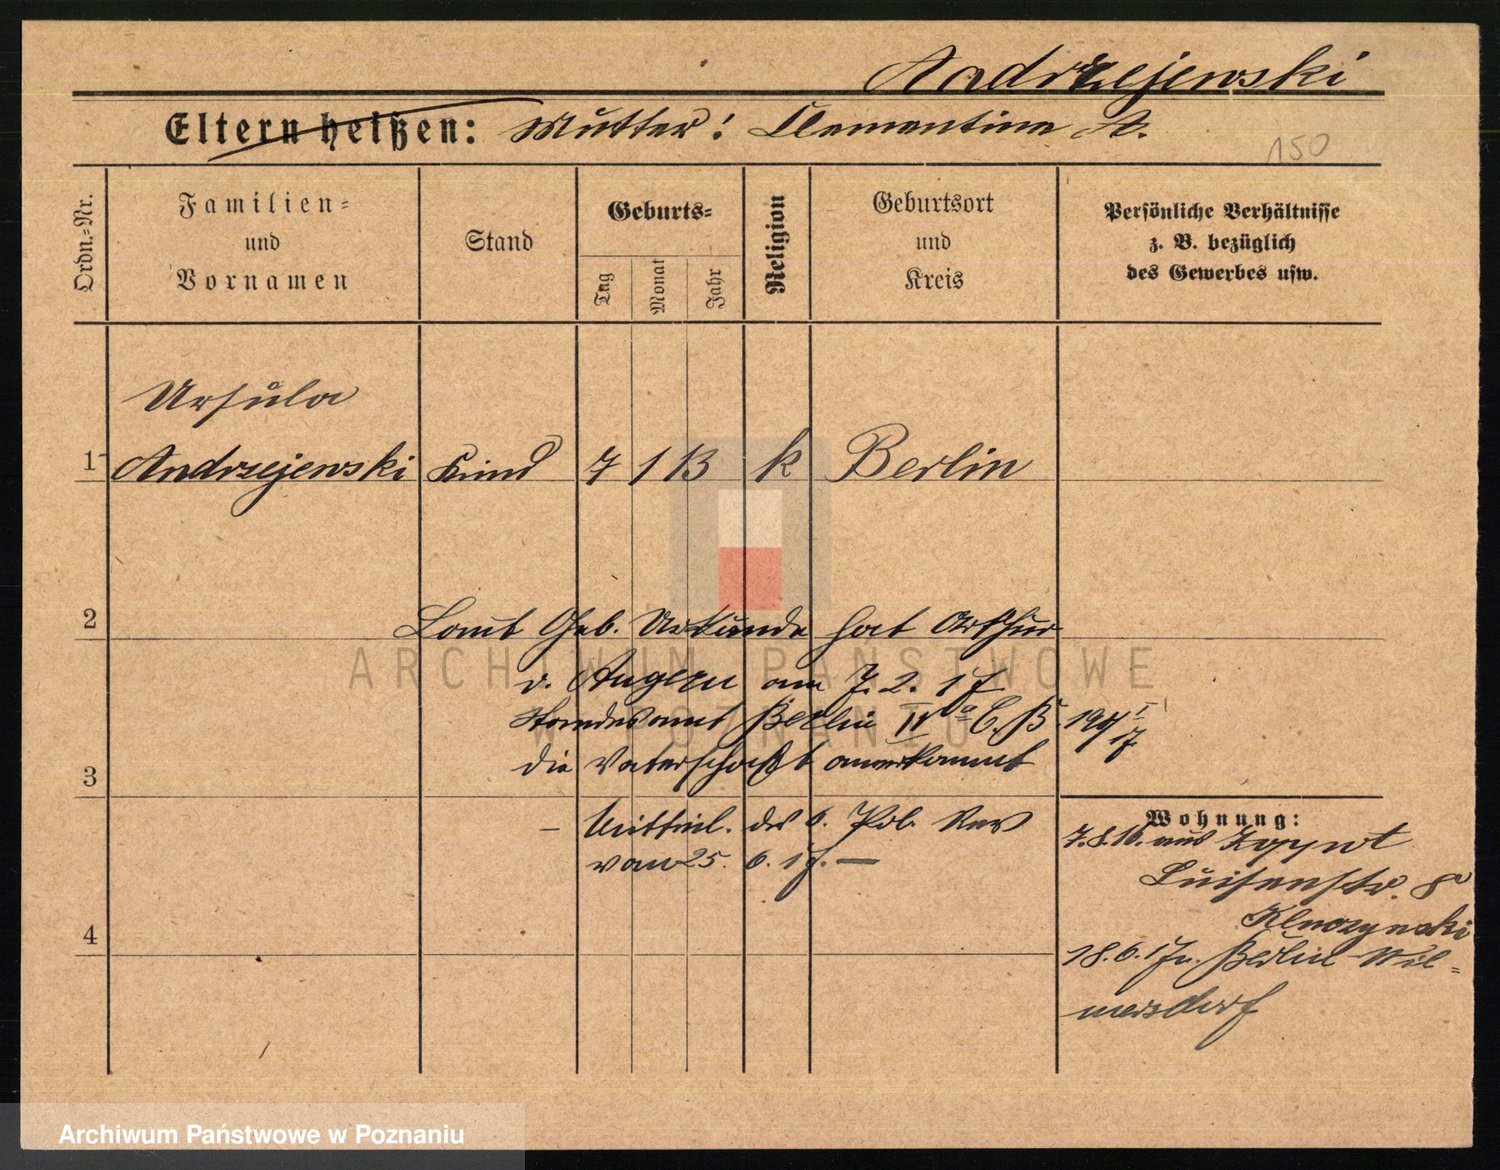 Andrzejewski
Eltern heißen: Mutter: Clementine A.
150
Ordn.-Nr.
Familien-
und
Vornamen
Stand
Geburts-
Tag
Monat
Jahr
Religion
Geburtsort
und
Kreis
Persönliche Verhältnisse
z. B. bezüglich
des Gewerbes usw.
Ursula
1 Andrzejewski Kind 7 1 13 k Berlin
2
Laut Geb. Urkunde hat Arthur
v. Angern am 7. 2. 17
Standesamt Berlin
die Vaterschaft anerkannt
3
– Mitteil. des 6. Pol. Rev
vom 25. 6. 17. —
Wohnung:
7.8.16. aus Zoppot
Luisenstr. 8
18.6.17 n. Berlin Wil-
mersdorf
4
ARCHIWUM PAŃSTWOWE
W POZNANIU
Archiwum Państwowe w Poznaniu